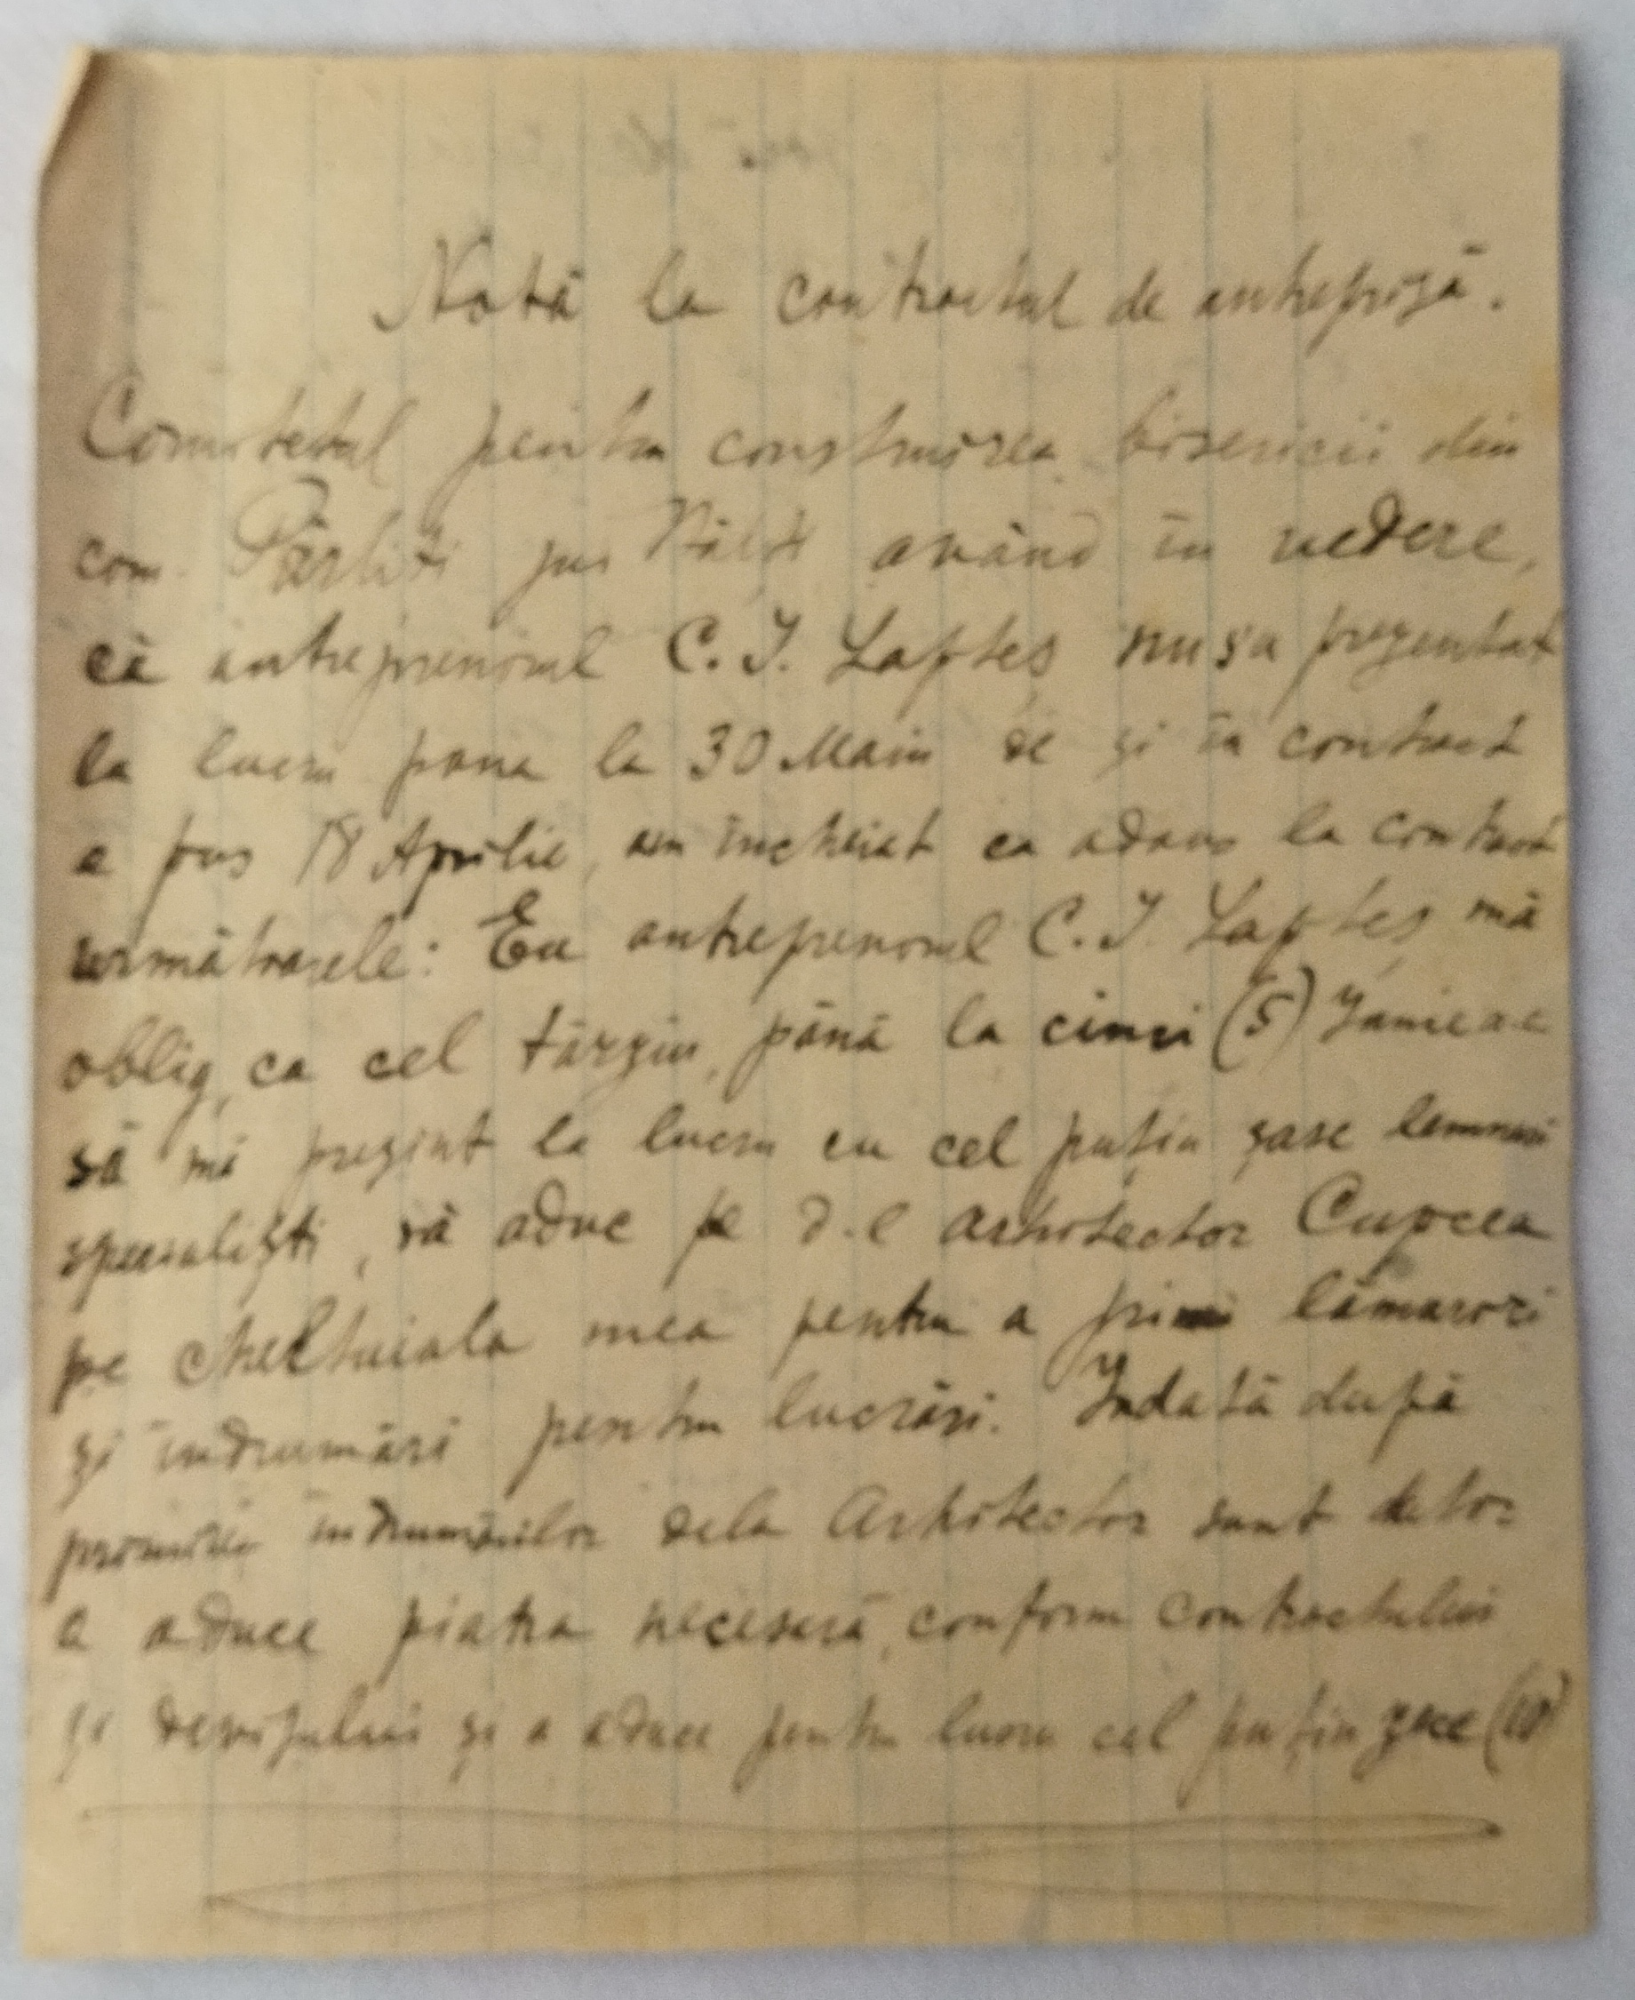 Notă la contractul de antrepriză.
Comitetul pentru construirea bisericii din
com. Pârliți jud Bălți având în vedere,
că antreprenorul C. I. Lapteș nu s'a prezentat
la lucru pana la 30 Maiu de și în contract
e pus 18 Aprilie, am încheiat ca adaus la contract
următoarele: Eu antreprenorul C. I. Lapteș mă
oblig, ca cel târziu, până la cinci (5) Iunie a c
să mă prezint la lucru cu cel puțin șase lemnari
specialiști, să aduc pe d-l arhitector Cupcea
pe cheltuiala mea pentru a primi lămuriri
și îndrumări pentru lucrări. Îndată după
primirea îndrumărilor dela Arhitector sunt dator
a aduce piatra necesară, conform contractului
și devizului și a aduce pentru lucru cel puțin zece (10)